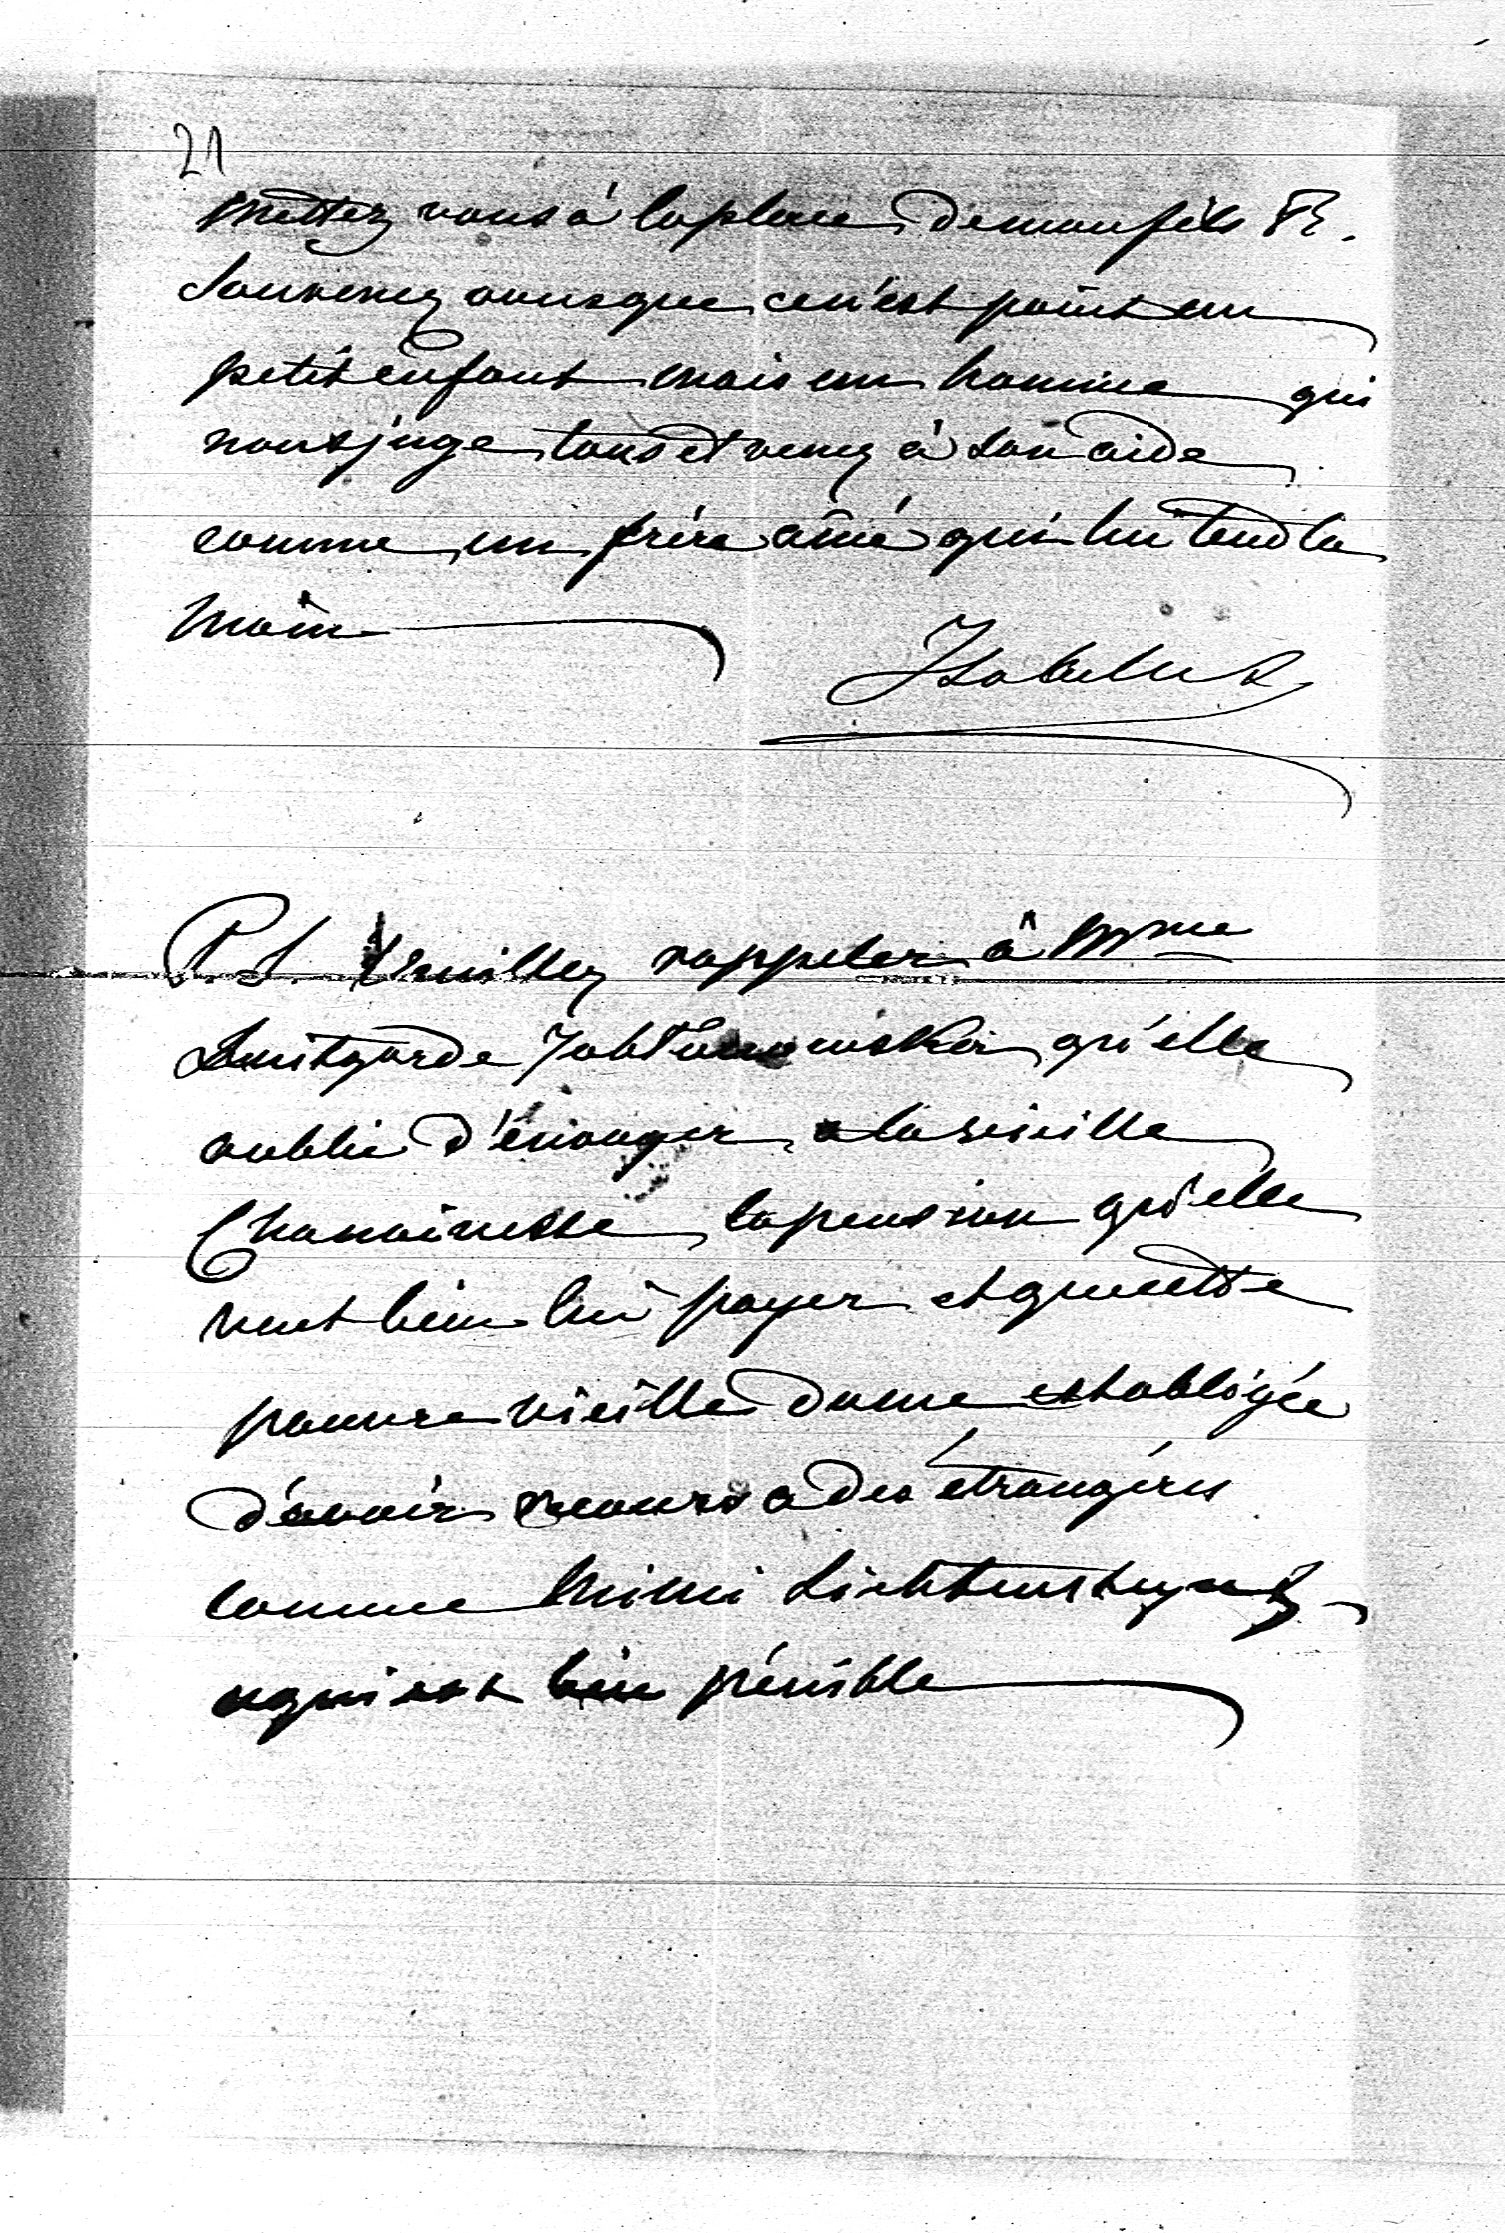 21
Mettez vous à la place de mon fils
Souvenez vous que ce n'est point un
petit enfant mais un homme qui
nous juge tous et venez à son aide
comme un frère ainé qui lui tend la
main
P.S. Veuillez rappeler à Mme
Luitgarde Jabłonowska qu'elle
oublie d'envoyer a la vieille
Chanoinesse la pension qu'elle
veut bien lui payer et que cette
pauvre vieille dame est obligée
d'avoir recours a des étrangères
comme Mimi
bien pénible